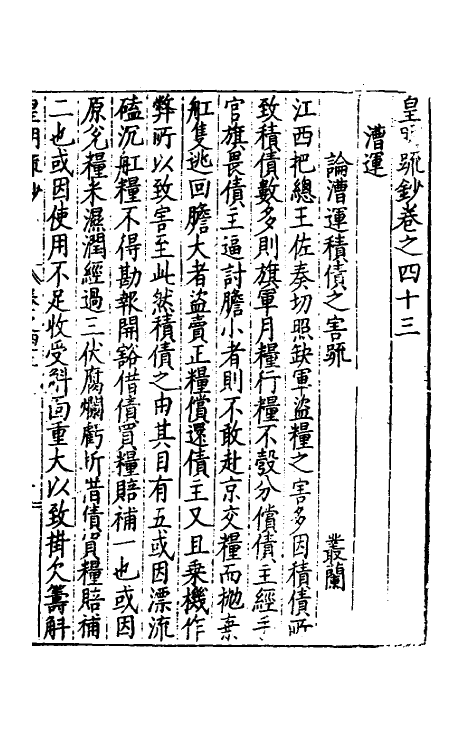 皇明疏鈔卷之四十三
漕運
論漕運積債之害疏 叢蘭
江西把總王佐奏切照缺軍盜糧之害多因積債所
致積債數多則旗軍月糧行糧不彀分償債主經手
官旗畏債主逼討膽小者則不敢赴京交糧而拋棄
舡隻逃回膽大者盜賣正糧償還債主又且乗機作
弊所以致害至此然積債之由其目有五或因漂流
磕沉舡糧不得勘報開豁借債買糧賠補一也或因
原兌糧米濕潤經過三伏腐爛虧折借債買糧賠補
二也或因使用不足收受斛面重大以致掛欠籌斛
皇明疏鈔